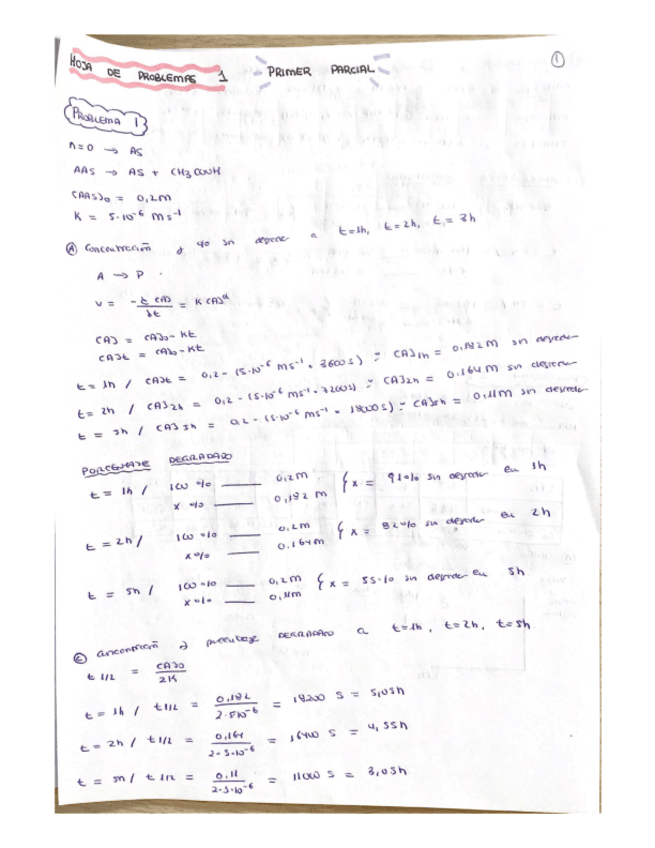 HOJA DE PROBLEMAS 1 PRIMER PARCIAL 1
PROBLEMA 1
n=0 → AS
AAS → AS + CH3COOH
(AAS)0 = 0,2M
K = 5·10-6 M s-1
A Concentración y % sin degradar a t=1h, t=2h, t=3h
A → P
v = -d(A)/dt = K(A)α
(A) = (A)0-Kt
(A)t = (A)0-Kt
t= 1h / (A)t = 0,2 - (5·10-6 M s-1 · 3600s) = (A)1h = 0,182M sin degradar
t= 2h / (A)2h = 0,2 - (5·10-6 M s-1 · 7200s) = (A)2h = 0,164M sin degradar
t = 5h / (A)5h = 0,2 - (5·10-6 M s-1 · 18000s) = (A)5h = 0,11M sin degradar
PORCENTAJE DEGRADADO
t = 1h / 100% 0,2M { x = 91% sin degradar en 1h
x % 0,182 M
t = 2h / 100% 0,2M { x = 82% sin degradar en 2h
x % 0,164M
t = 5h / 100% 0,2M { x = 55% sin degradar en 5h
x % 0,11M
Concentración y porcentaje DEGRADADO a t=1h, t=2h, t=5h
t 1/2 = (A)0 / 2K
t = 1h / t1/2 = 0,182 / 2·5·10-6 = 18200 s = 5,05h
t = 2h / t1/2 = 0,164 / 2·5·10-6 = 16400 s = 4,55h
t = 5h / t 1/2 = 0,11 / 2·5·10-6 = 11000 s = 3,05h